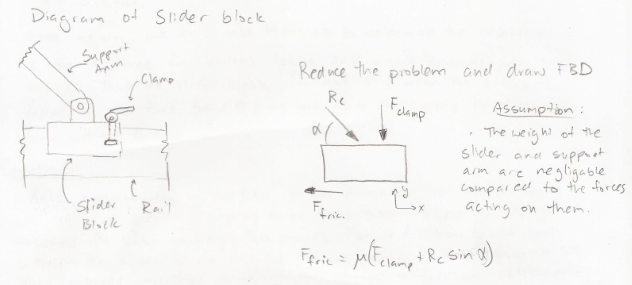 Diagram of Slider block
Support
Arm
Clamp
Slider
Block
Rail
Reduce the problem and draw FBD
Rc
Fclamp
α
Ffric.
y
x
Assumption:
. The weight of the
slider and support
arm are negligable
compared to the forces
acting on them.
Ffric = μ(Fclamp + Rc sin α)